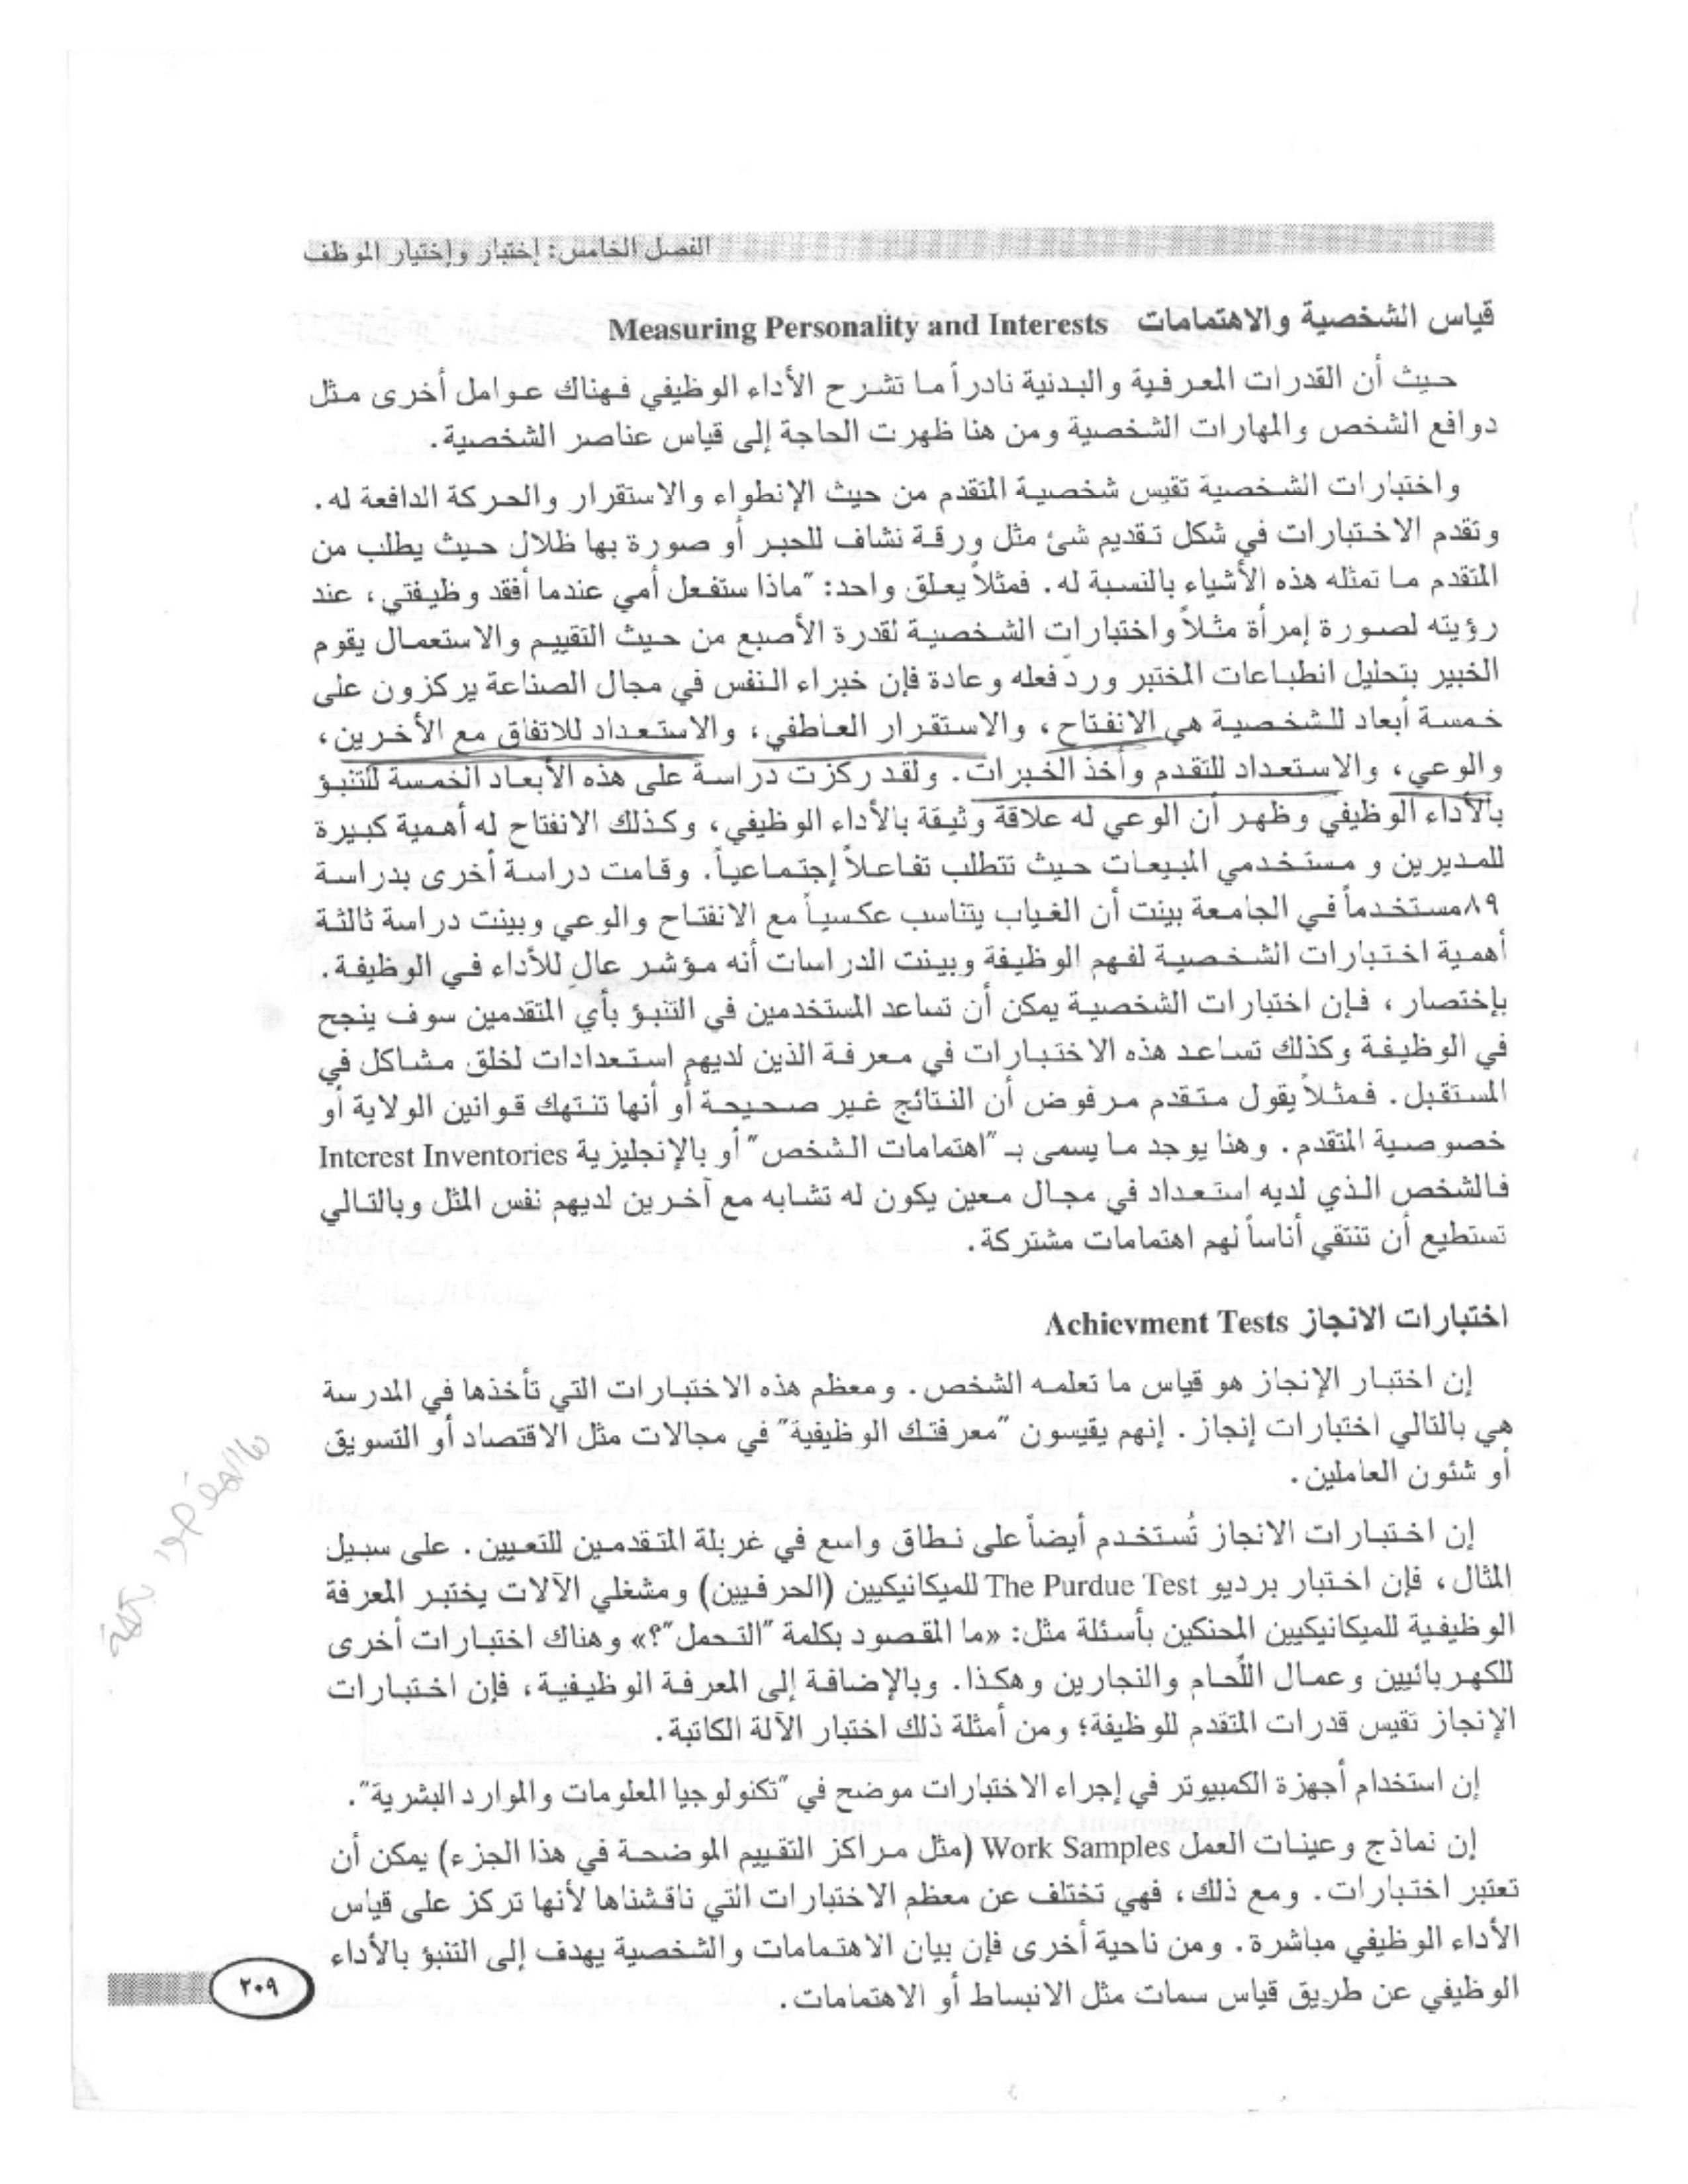 الفصل الخامس: إختبار وإختيار الموظف
قياس الشخصية والاهتمامات Measuring Personality and Interests
حيث أن القدرات المعرفية والبدنية نادراً ما تشرح الأداء الوظيفي فهناك عوامل أخرى مثل
دوافع الشخص والمهارات الشخصية ومن هنا ظهرت الحاجة إلى قياس عناصر الشخصية.
واختبارات الشخصية تقيس شخصية المتقدم من حيث الإنطواء والاستقرار والحركة الدافعة له.
وتقدم الاختبارات في شكل تقديم شئ مثل ورقة نشاف للحبر أو صورة بها ظلال حيث يطلب من
المتقدم ما تمثله هذه الأشياء بالنسبة له. فمثلاً يعلق واحد: "ماذا ستفعل أمي عندما أفقد وظيفتي، عند
رؤيته لصورة إمرأة مثلاً واختبارات الشخصية لقدرة الأصبع من حيث التقييم والاستعمال يقوم
الخبير بتحليل انطباعات المختبر ورد فعله وعادة فإن خبراء النفس في مجال الصناعة يركزون على
خمسة أبعاد للشخصية هي الانفتاح، والاستقرار العاطفي، والاستعداد للاتفاق مع الأخرين،
والوعي، والاستعداد للتقدم وأخذ الخبرات. ولقد ركزت دراسة على هذه الأبعاد الخمسة للتنبؤ
بالأداء الوظيفي وظهر أن الوعي له علاقة وثيقة بالأداء الوظيفي، وكذلك الانفتاح له أهمية كبيرة
للمديرين و مستخدمي المبيعات حيث تتطلب تفاعلاً إجتماعياً. وقامت دراسة أخرى بدراسة
٨٩مستخدماً في الجامعة بينت أن الغياب يتناسب عكسياً مع الانفتاح والوعي وبينت دراسة ثالثة
أهمية اختبارات الشخصية لفهم الوظيفة وبينت الدراسات أنه مؤشر عالٍ للأداء في الوظيفة.
بإختصار، فإن اختبارات الشخصية يمكن أن تساعد المستخدمين في التنبؤ بأي المتقدمين سوف ينجح
في الوظيفة وكذلك تساعد هذه الاختبارات في معرفة الذين لديهم استعدادات لخلق مشاكل في
المستقبل. فمثلاً يقول متقدم مرفوض أن النتائج غير صحيحة أو أنها تنتهك قوانين الولاية أو
خصوصية المتقدم. وهنا يوجد ما يسمى بـ "اهتمامات الشخص" أو بالإنجليزية Interest Inventories
فالشخص الذي لديه استعداد في مجال معين يكون له تشابه مع آخرين لديهم نفس المثل وبالتالي
تستطيع أن تنتقي أناساً لهم اهتمامات مشتركة.
اختبارات الانجاز Achievment Tests
إن اختبار الإنجاز هو قياس ما تعلمه الشخص. ومعظم هذه الاختبارات التي تأخذها في المدرسة
هي بالتالي اختبارات إنجاز. إنهم يقيسون "معرفتك الوظيفية" في مجالات مثل الاقتصاد أو التسويق
أو شئون العاملين.
إن اختبارات الانجاز تُستخدم أيضاً على نطاق واسع في غربلة المتقدمين للتعيين. على سبيل
المثال، فإن اختبار برديو The Purdue Test للميكانيكيين (الحرفيين) ومشغلي الآلات يختبر المعرفة
الوظيفية للميكانيكيين المحنكين بأسئلة مثل: «ما المقصود بكلمة "التحمل"؟» وهناك اختبارات أخرى
للكهربائيين وعمال اللّحام والنجارين وهكذا. وبالإضافة إلى المعرفة الوظيفية، فإن اختبارات
الإنجاز تقيس قدرات المتقدم للوظيفة؛ ومن أمثلة ذلك اختبار الآلة الكاتبة.
إن استخدام أجهزة الكمبيوتر في إجراء الاختبارات موضح في "تكنولوجيا المعلومات والموارد البشرية".
إن نماذج وعينات العمل Work Samples (مثل مراكز التقييم الموضحة في هذا الجزء) يمكن أن
تعتبر اختبارات. ومع ذلك، فهي تختلف عن معظم الاختبارات التي ناقشناها لأنها تركز على قياس
الأداء الوظيفي مباشرة. ومن ناحية أخرى فإن بيان الاهتمامات والشخصية يهدف إلى التنبؤ بالأداء
الوظيفي عن طريق قياس سمات مثل الانبساط أو الاهتمامات.
٢٠٩